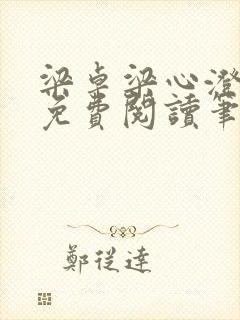 梁卓梁心澄
免費閱讀筆
鄭從達